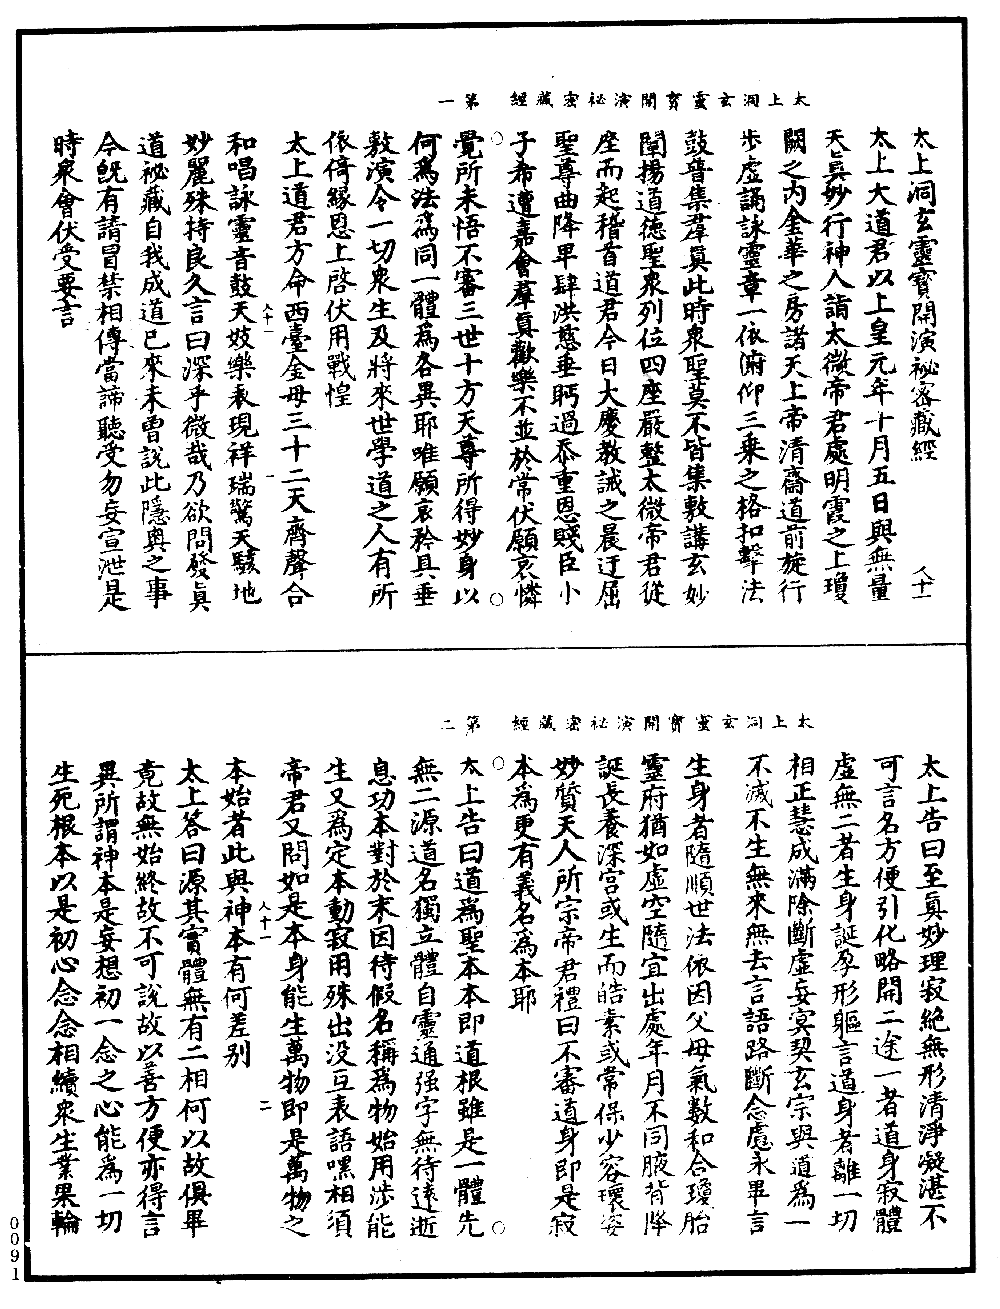 太上洞玄靈寶開演祕密藏經　第一
太上洞玄靈寶開演祕密藏經　人十一
太上大道君以上皇元年十月五日與無量
天眞妙行神人詣太微帝君處明霞之上瓊
闕之内金華之房諸天上帝清齋道前旋行
步虛誦詠靈章一依俯仰三乘之格扣擊法
鼓普集羣眞此時衆聖莫不皆集敷講玄妙
闡揚道德聖衆列位四座嚴整太微帝君從
座而起稽首道君今日大慶教誡之晨迂屈
聖尊曲降卑肆洪慈垂眄過忝重恩賤臣小
子希遭嘉會羣眞歡樂不並於常伏願哀憐
覺所未悟不審三世十方天尊所得妙身以
何爲法爲同一體爲各異耶唯願哀矜具垂
敷演令一切衆生及將來世學道之人有所
依倚緣恩上啓伏用戰惶
太上道君方命西臺金母三十二天齊聲合
人十一　一
和唱詠靈音鼓天妓樂表現祥瑞驚天駭地
妙麗殊持良久言曰深乎微哉乃欲問發眞
道祕藏自我成道已來未曾說此隱奥之事
今旣有請冒禁相傳當諦聽受勿妄宣泄是
時衆會伏受要言
太上洞玄靈寶開演祕密藏經　第二
太上告曰至眞妙理寂絶無形清淨凝湛不
可言名方便引化略開二途一者道身寂體
虛無二者生身誕孕形軀言道身者離一切
相正慧成滿除斷虛妄冥契玄宗與道爲一
不滅不生無來無去言語路斷念慮永畢言
生身者隨順世法依因父母氣數和合瓊胎
靈府猶如虛空隨宜出處年月不同腋背降
誕長養深宫或生而皓素或常保少容瓌姿
妙質天人所宗帝君禮曰不審道身即是寂
本爲更有義名爲本耶
太上告曰道爲聖本本即道根雖是一體先
無二源道名獨立體自靈通强字無待遠逝
息功本對於末因待假名稱爲物始用涉能
生又爲定本動寂用殊出没互表語嘿相須
帝君又問如是本身能生萬物即是萬物之
人十一　二
本始者此與神本有何差別
太上答曰源其實體無有二相何以故俱畢
竟故無始終故不可說故以善方便亦得言
異所謂神本是妄想初一念之心能爲一切
生死根本以是初心念念相續衆生業果輪
0091